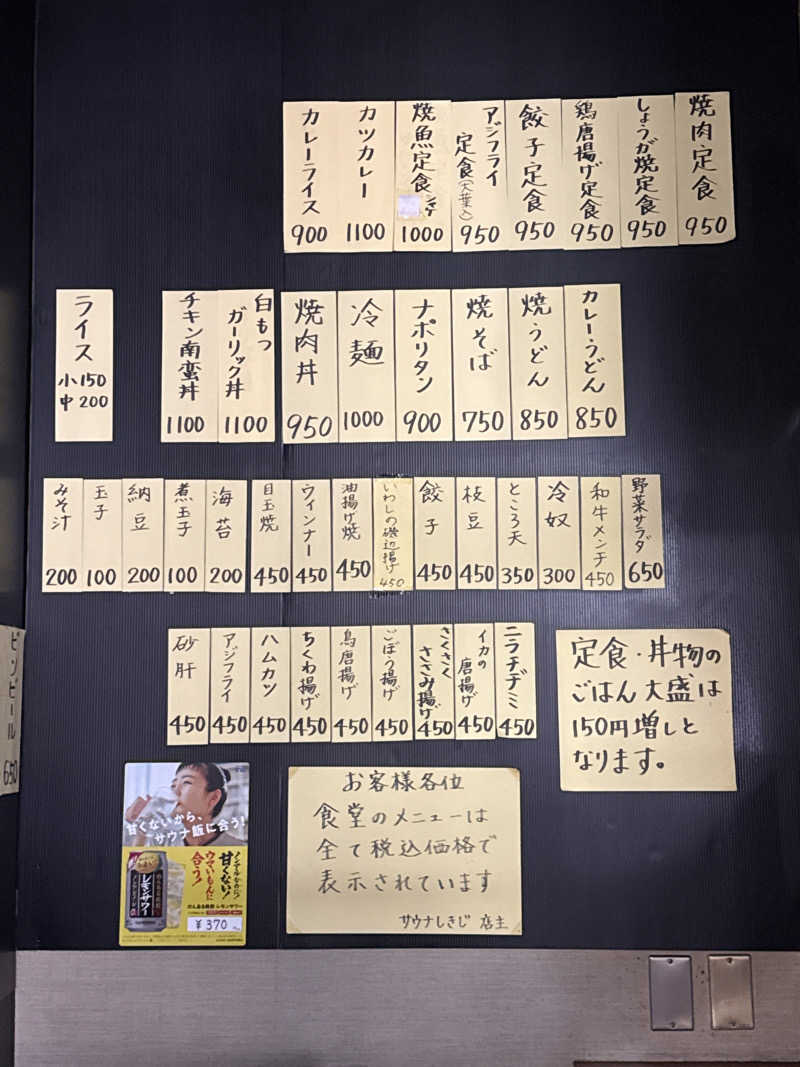 焼肉定食
950
しょうが焼定食
950
鶏唐揚げ定食
950
餃子定食
950
アジフライ
定食(大葉入)
950
焼魚定食
シャケ
1000
カツカレー
1100
カレーライス
900
カレーうどん
850
焼うどん
850
焼そば
750
ナポリタン
900
冷麺
1000
焼肉丼
950
白もつ
ガーリック丼
1100
チキン南蛮丼
1100
ライス
小150
中200
野菜サラダ
650
和牛メンチ
450
冷奴
300
ところ天
350
枝豆
450
餃子
450
いわしの磯辺揚げ
450
油揚げ焼
450
ウィンナー
450
目玉焼
450
海苔
200
煮玉子
100
納豆
200
玉子
100
みそ汁
200
ニラチヂミ
450
イカの
唐揚げ
450
さくさく
ささみ揚げ
450
ごぼう揚げ
450
鳥唐揚げ
450
ちくわ揚げ
450
ハムカツ
450
アジフライ
450
砂肝
450
定食・丼物の
ごはん大盛は
150円増しと
なります。
ビンビール
650
お客様各位
食堂のメニューは
全て税込価格で
表示されています
サウナしきじ 店主
甘くないから、
サウナ飯に合う!
ノンアルなのに!
甘くない!
ウマいもんに
合う!
レモンサワー
のんある晩酌 レモンサワー
¥370